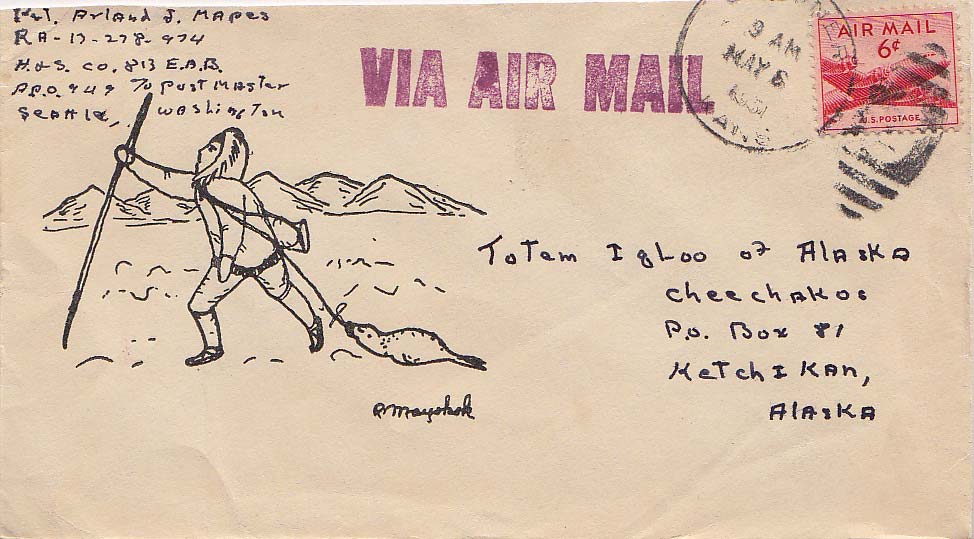 Pvt. Arland J. Mapes
RA-17-278-974
H&S. Co. 813 E.A.B.
A.P.O. 949 % PostMaster
Seattle, Washington
VIA AIR MAIL
9 AM
MAY 6
1951
KANS
AIR MAIL
6¢
U.S. POSTAGE
Totem Igloo of Alaska
Cheechakos
P.O. Box 81
Ketchikan,
Alaska
R. Mayokok